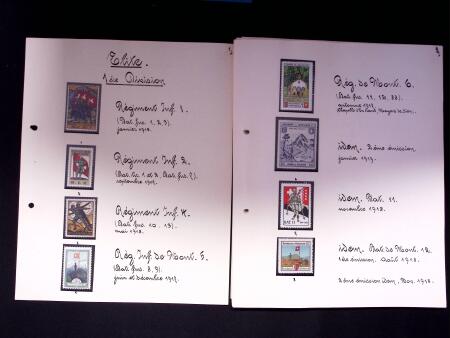 Elite.
1ère Division
Régiment Inf. 1.
(Bat. fus. 1, 2, 3).
janvier 1918.
Régiment Inf. 2.
septembre 1917.
Régiment Inf. 4.
(Bat. fus. 10, 13).
mai 1918.
Rég. Inf. de Mont. 5.
(Bat. fus. 8, 9).
juin et décembre 1917.
Rég. de Mont. 6.
(Bat. fus. 11, 12, 88).
automne 1917.
idem. 2ème émission.
janvier 1919.
idem. Bat. 11.
novembre 1918.
idem. Bat. de Mont. 12.
1ère émission. Août 1918.
2ème émission idem, Nov. 1918.
BAT 11